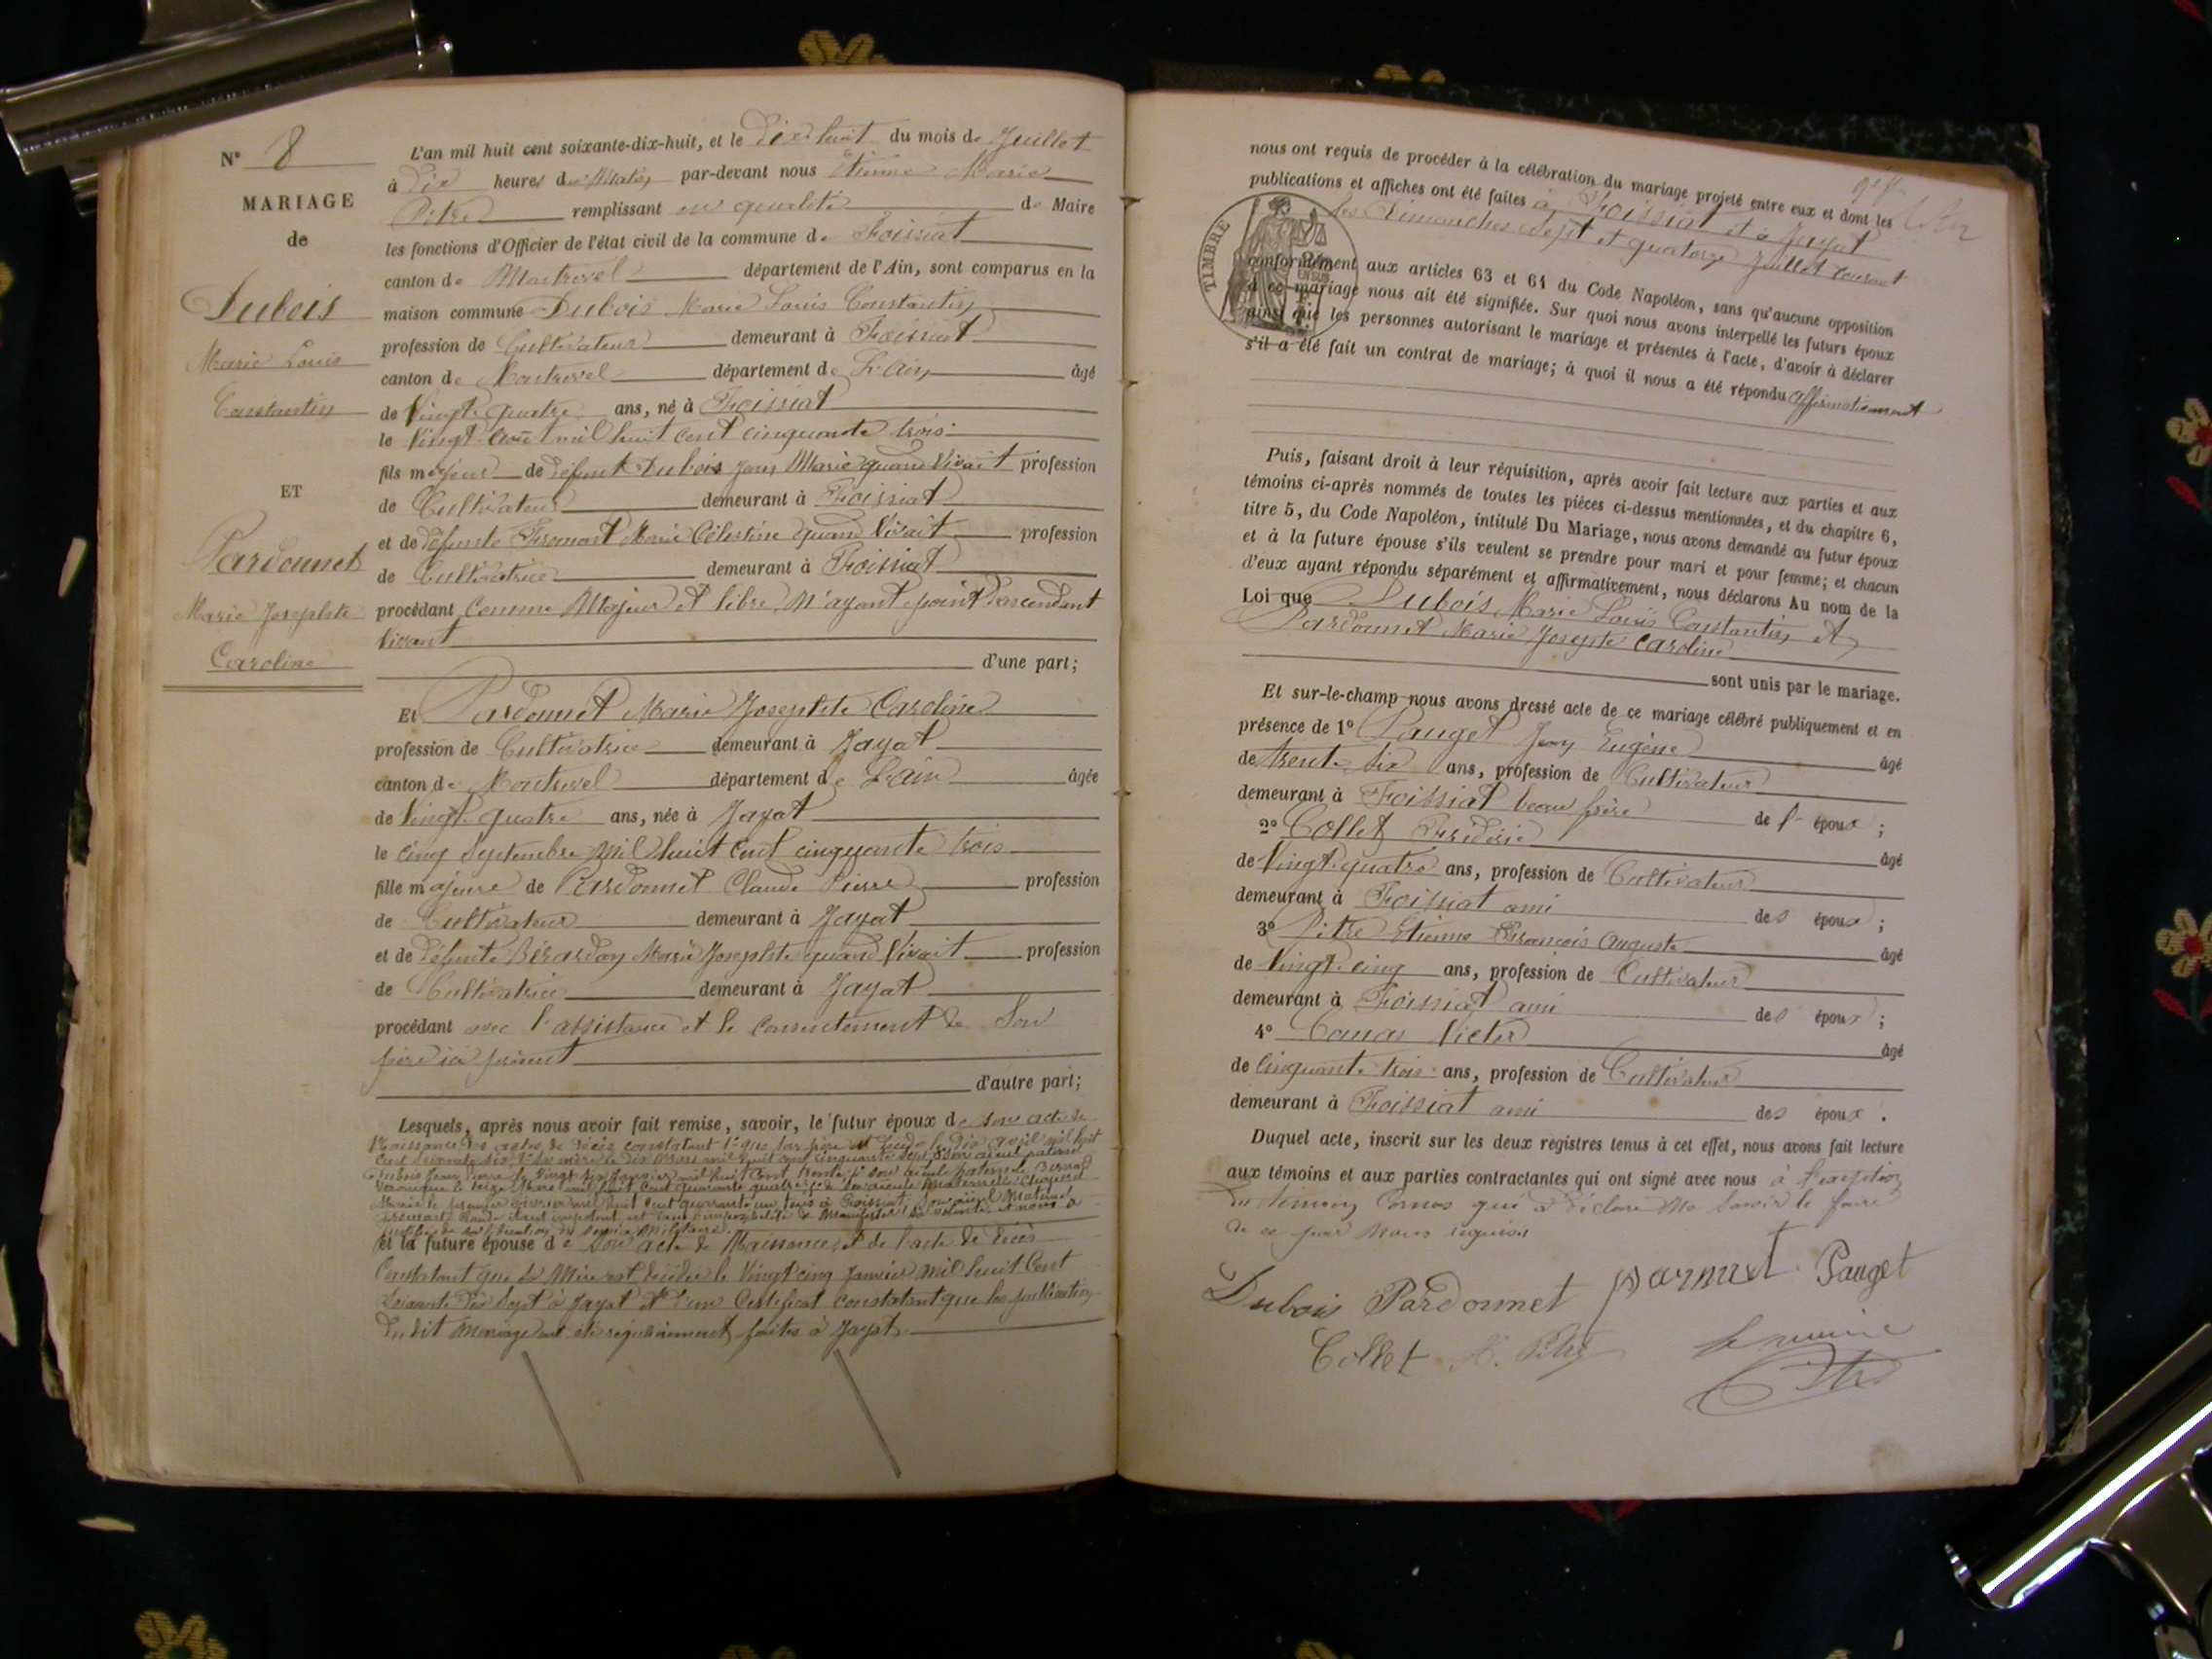 N° 8
MARIAGE
de
Dubois
Marie Louis
Constantin
ET
Pardonnet
Marie Josephte
Caroline
L'an mil huit cent soixante-dix-huit, et le Dix huit du mois de Juillet
à Dix heures du Matin par-devant nous Etienne Marie
Pitre remplissant en qualité de Maire
les fonctions d'Officier de l'état civil de la commune de Foissiat
canton de Montrevel département de l'Ain, sont comparus en la
maison commune Dubois Marie Louis Constantin
profession de Cultivateur demeurant à Foissiat
canton de Montrevel département de L'Ain âgé
de Vingt quatre ans, né à Foissiat
le Vingt août mil huit cent cinquante trois
fils majeur de défunt Dubois Jean Marie quand Vivait profession
de Cultivateur demeurant à Foissiat
et de défunte Fromont Marie Célestine quand Vivait profession
de Cultivatrice demeurant à Foissiat
procédant comme Majeur et libre N'ayant point d'ascendant
Vivant
d'une part;
Et Pardonnet Marie Josephte Caroline
profession de Cultivatrice demeurant à Jayat
canton de Montrevel département de L'Ain âgée
de Vingt quatre ans, née à Jayat
le cinq Septembre Mil huit Cent cinquante trois
fille majeure de Pardonnet Claude Pierre profession
de Cultivateur demeurant à Jayat
et de défunte Bérardan Marie Josephte quand Vivait profession
de Cultivatrice demeurant à Jayat
procédant avec l'assistance et le consentement de Son
père ici présent
d'autre part;
Lesquels, après nous avoir fait remise, savoir, le futur époux de son acte de
Naissance des actes de décès constatant 1° que son père est décédé le dix avril mil huit
cent soixante six 2° sa mère le dix Mars mil huit cent cinquante sept 3° son aïeul paternel
Dubois Jean Pierre le Vingt six Janvier mil huit Cent trente son aïeule paternelle
Véronique le mil huit Cent quarante quatre de son aïeule Maternelle
Marie le premier mil huit Cent quarante un tous à Foissiat Son aïeul Maternel
Fromont Claude étant est dans l'impossibilité de Manifester sa volonté et nous a
du service Militaire
et la future épouse de Son acte de Naissance et de l'acte de décès
Constatant que sa Mère est décédée le Vingt cinq Janvier mil huit Cent
Soixante dix Sept à Jayat et d'un Certificat constatant que les publications
du dit Mariage ont été régulièrement faites à Jayat
nous ont requis de procéder à la célébration du mariage projeté entre eux et dont les
publications et affiches ont été faites à Foissiat et à Jayat
les Dimanches Sept et quatorze Juillet courant
TIMBRE
conformément aux articles 63 et 64 du Code Napoléon, sans qu'aucune opposition
à ce mariage nous ait été signifiée. Sur quoi nous avons interpellé les futurs époux
ainsi que les personnes autorisant le mariage et présentes à l'acte, d'avoir à déclarer
s'il a été fait un contrat de mariage; à quoi il nous a été répondu affirmativement
Puis, faisant droit à leur réquisition, après avoir fait lecture aux parties et aux
témoins ci-après nommés de toutes les pièces ci-dessus mentionnées, et du chapitre 6,
titre 5, du Code Napoléon, intitulé Du Mariage, nous avons demandé au futur époux
et à la future épouse s'ils veulent se prendre pour mari et pour femme; et chacun
d'eux ayant répondu séparément et affirmativement, nous déclarons Au nom de la
Loi que Dubois Marie Louis Constantin et
Pardonnet Marie Josephte Caroline
sont unis par le mariage.
Et sur-le-champ nous avons dressé acte de ce mariage célébré publiquement et en
présence de 1° Pauget Jean Eugène âgé
de trente six ans, profession de Cultivateur
demeurant à Foissiat beau frère de l' époux ;
2° Collet Frédéric âgé
de Vingt quatre ans, profession de Cultivateur
demeurant à Foissiat ami des époux ;
3° Pitre Etienne François Auguste âgé
de Vingt cinq ans, profession de Cultivateur
demeurant à Foissiat ami des époux ;
4° Comas Victor âgé
de Cinquante trois ans, profession de Cultivateur
demeurant à Foissiat ami des époux .
Duquel acte, inscrit sur les deux registres tenus à cet effet, nous avons fait lecture
aux témoins et aux parties contractantes qui ont signé avec nous à l'exception
du témoin Comas qui a déclaré Ne Savoir le faire
de ce par Nous requis
Dubois Pardonnet Pauget
Collet Pitre le maire
Pitre